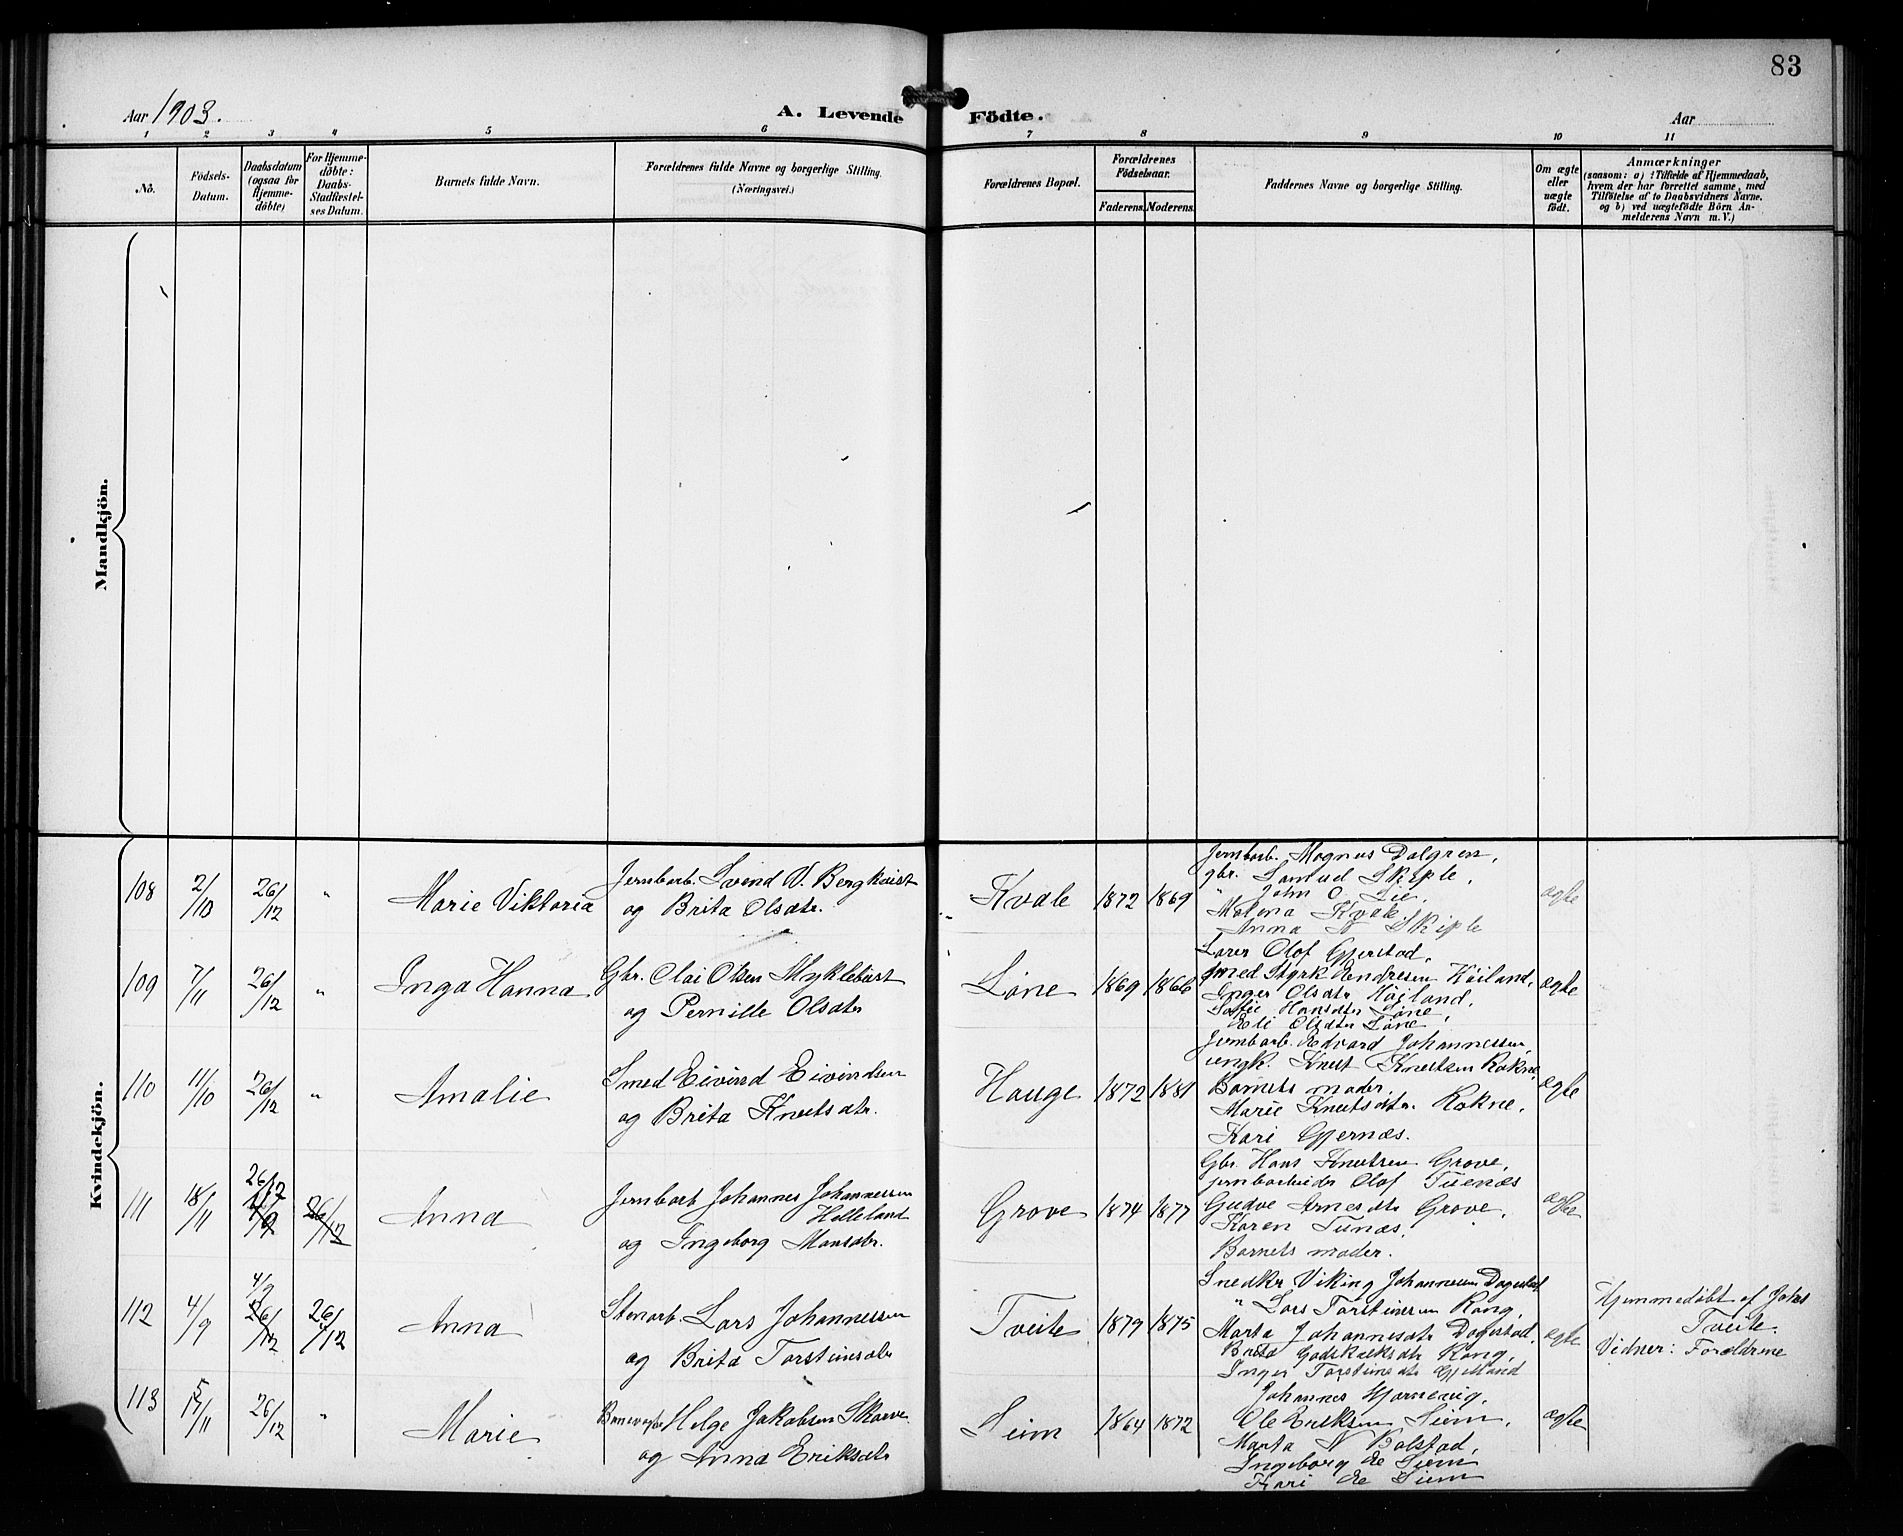 83
Aar 1903.
A. Levende Födte.
Aar
1 2 3 4 5 6 7 8 9 10 11
No.
Födsels-Datum.
Daabsdatum (ogsaa for Hjemme-döbte)
For Hjemme-döbte: Daabs-Stadfæstel-ses Datum.
Barnets fulde Navn.
Forældrenes fulde Navne og borgerlige Stilling.
(Næringsvei.)
Forældrenes Bopæl.
Forældrenes Födselsaar.
Faderens. Moderens.
Faddernes Navne og borgerlige Stilling.
Om ægte eller uægte födt.
Anmærkninger
(saasom: a) i Tilfælde af Hjemmedaab,
hvem der har forrettet samme, med
Tilföielse af to Daabsvidners Navne,
og b) ved uægtefödte Börn An-
melderens Navn m. V.)
Mandkjön.
Kvindekjön.
108 2/10 26/12 " Marie Viktoria
Jernbarb. Svend V. Bergkvist
og Brita Olsdtr.
Kvale 1872 1869
Jernbarb. Magnus Dalgren,
gbr. Samuel Skiple,
" John O. Lie,
Malena Kvale,
Anna N Skiple
ægte
109 7/11 26/12 " Inga Hanna
Gbr. Olai Olsen Myklebust
og Pernille Olsdtr
Löne 1869 1866
Lærer Olof Gjerstad,
Smed Styrk Endresen Höiland,
Inger Olsdtr Höiland,
Sofie Hansdtr Löne,
Eli Olsdtr Löne
ægte
110 11/10 26/12 " Amalie
Smed Eivind Eivindsen
og Brita Knutsdtr.
Hauge 1872 1881
Jernbarb. Edvard Johannessen,
ungk. Knut Knutsen Rokne,
Barnets moder,
Marie Knutsdtr. Rokne,
Kari Gjernæs.
ægte
111 18/11 26/12 26/12 Anna
Jernbarb Johannes Johannessen
Helleland
og Ingeborg Mansdtr.
Grove 1874 1877
Gbr Hans Knutsen Grove,
jernbarbeider Olof
Gudve Arnesdtr Grove,
Karen
Barnets moder.
ægte
112 4/9 4/9 26/12 26/12 Anna
Stenarb. Lars Johannessen
og Brita Torsteinsdtr
Tveite 1879 1875
Snedkr Viking Johannessen Dagestad
" Lars Torsteinsen Rong,
Marta Johannesdtr Dagestad,
Brita Godskalksdtr Rong,
Inger Torsteinsdtr Gjelland
ægte
Hjemmedøbt af Johs
Tveite.
Vidner: Forældrene
113 5/11 26/12 " Marie
Banevogter Helge Jakobsen Skorve
og Anna Eriksdtr
Seim 1864 1872
Johannes
Ole Eriksen Seim,
Marta N Bolstad,
Ingeborg Seim
Kari Seim
ægte